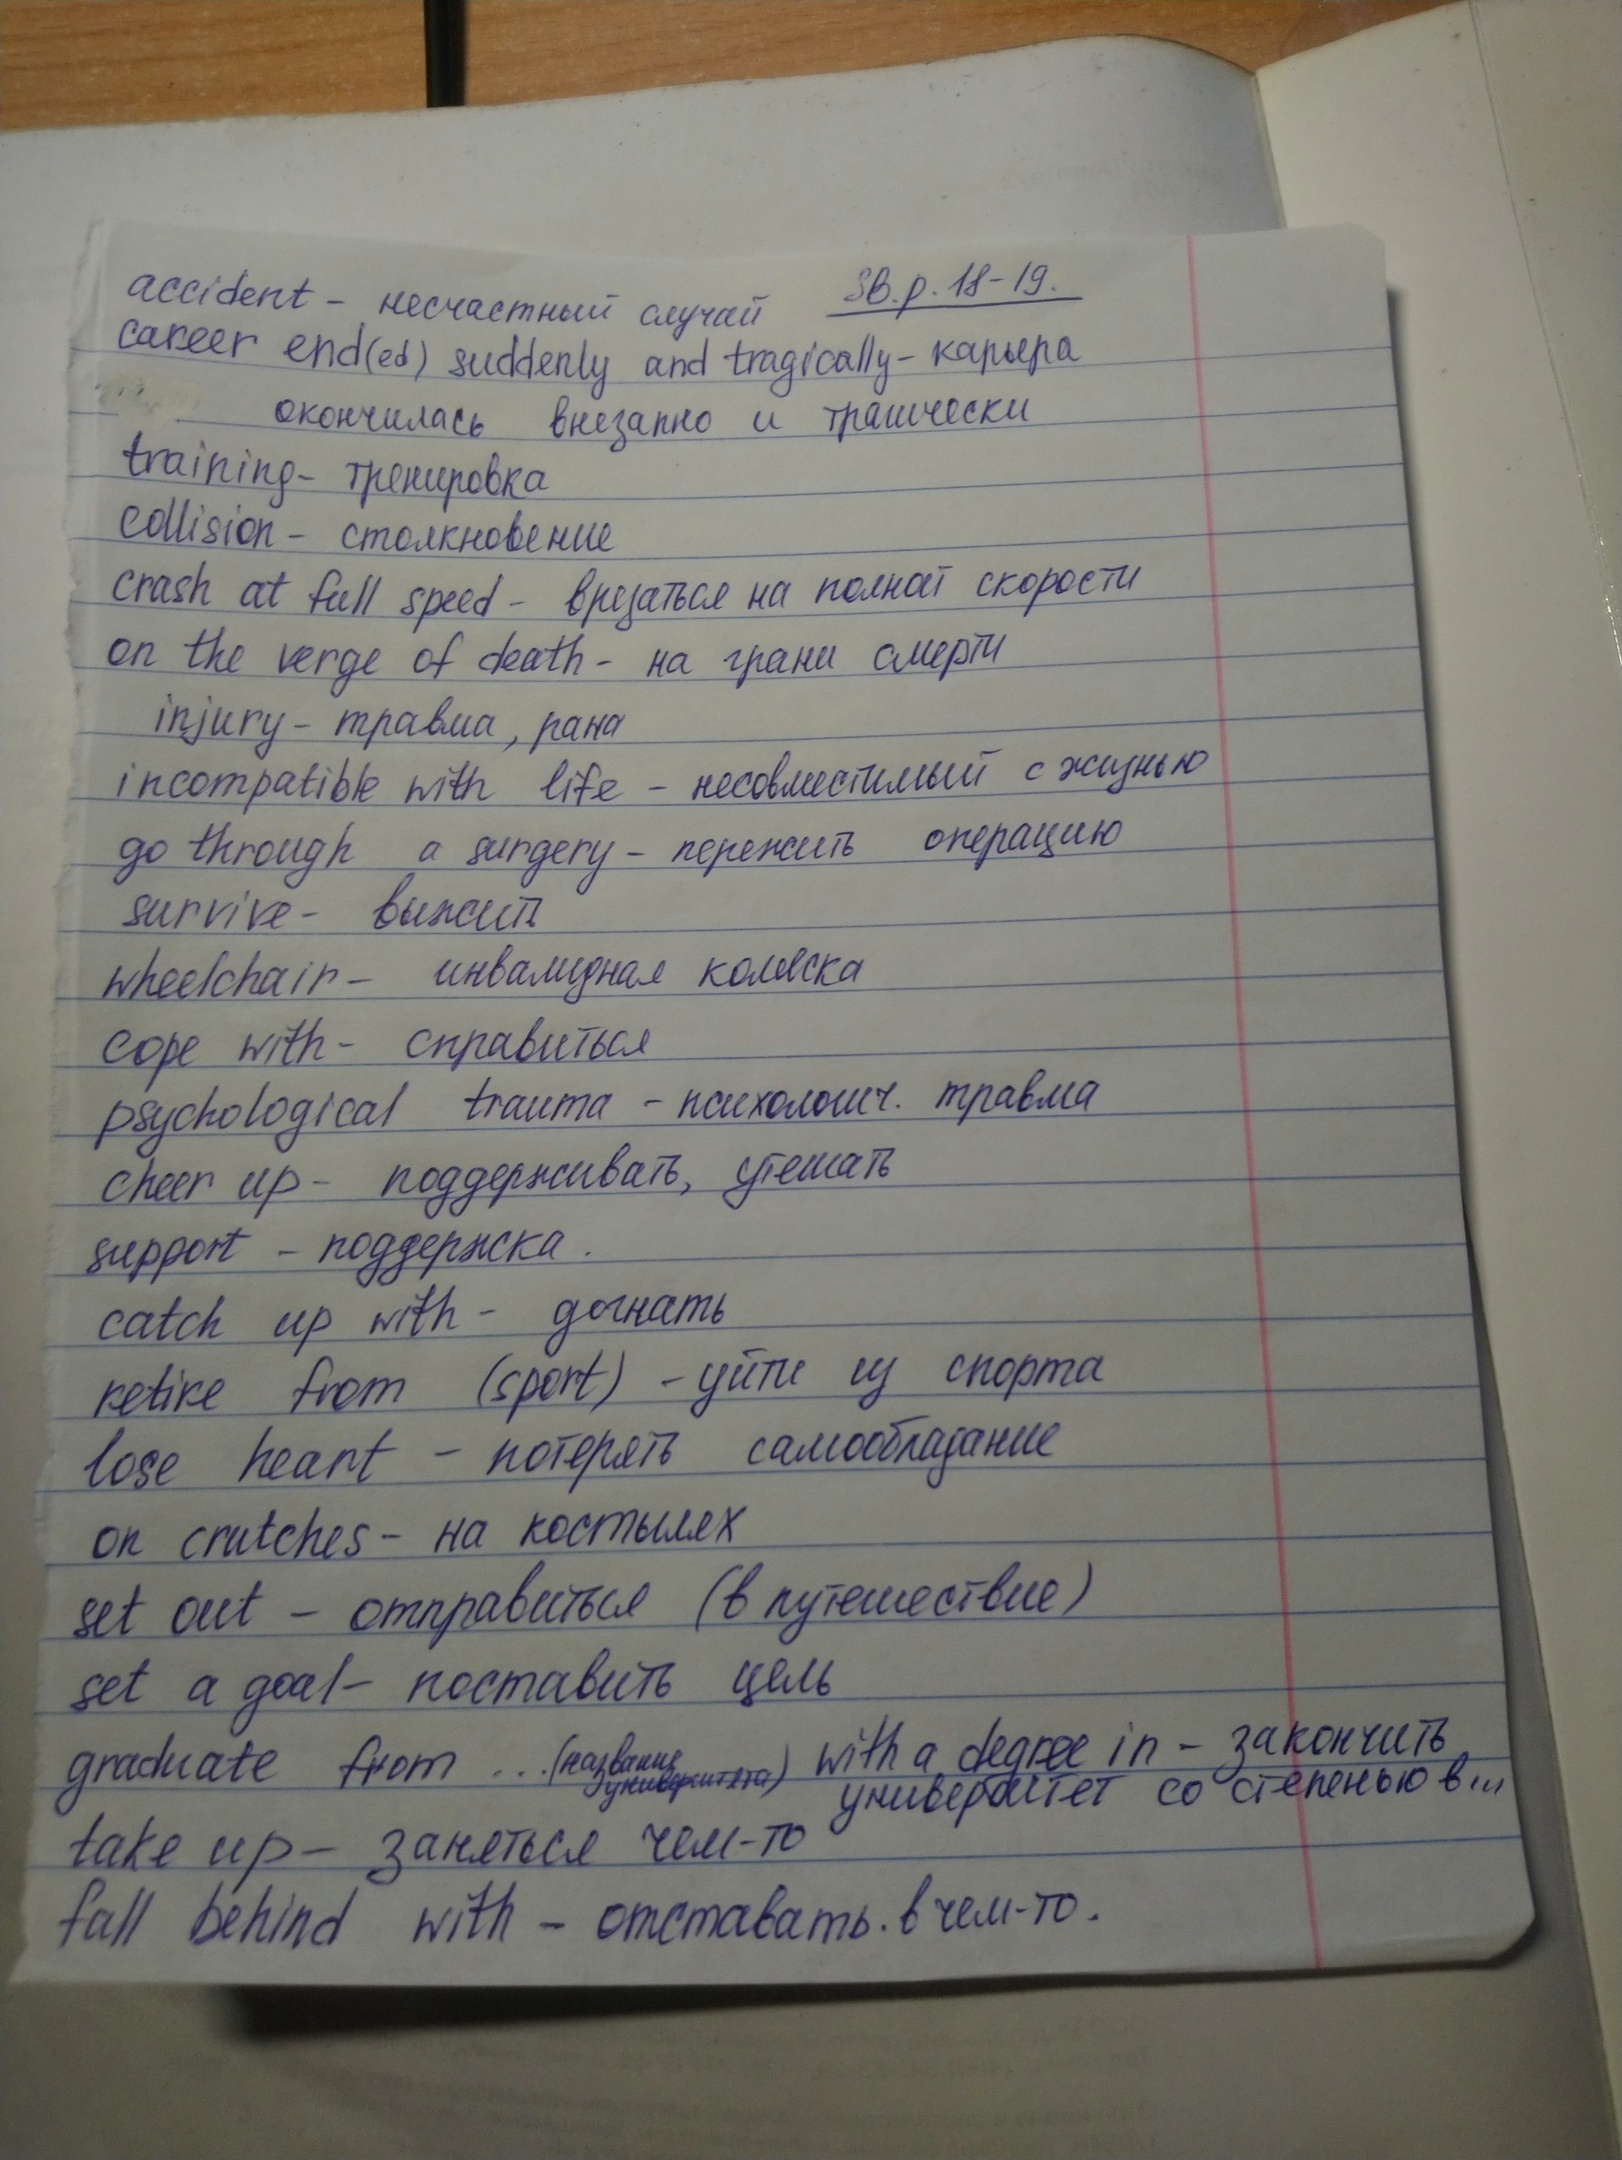 SB. p. 18-19.
accident - несчастный случай
career end(ed) suddenly and tragically - карьера
окончилась внезапно и трагически
training - тренировка
collision - столкновение
crash at full speed - врезаться на полной скорости
on the verge of death - на грани смерти
injury - травма, рана
incompatible with life - несовместимый с жизнью
go through a surgery - пережить операцию
survive - выжить
wheelchair - инвалидная коляска
cope with - справиться
psychological trauma - психологич. травма
cheer up - поддерживать, утешать
support - поддержка.
catch up with - догнать
retire from (sport) - уйти из спорта
lose heart - потерять самообладание
on crutches - на костылях
set out - отправиться (в путешествие)
set a goal - поставить цель
graduate from ... (название университета) with a degree in - закончить
университет со степенью в...
take up - заняться чем-то
fall behind with - отставать. в чем-то.